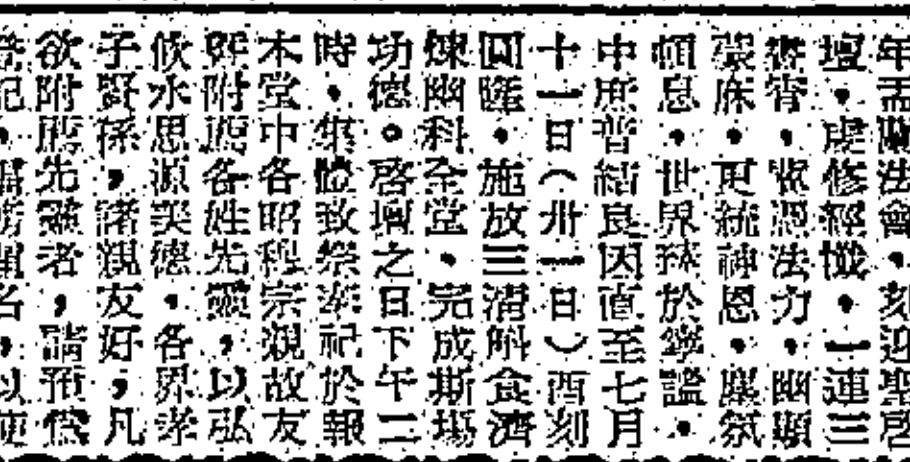 年盂蘭法會，刻迎聖啓
壇，虔修經懺，一連三
晝宵，法力，幽顯
蒙庥，更統神恩，塵氛
頓息，世界於謐，
中庶普結良因直至七月
十一日（卅一日）酉刻
圓隆，施放三清斛食濟
煉幽科全堂，完成斯場
功德。啓壇之日下午二
時，集體致祭奉祀於報
本堂中各昭穆宗親故友
暨附薦各姓先靈，以弘
飲水思源美德，各界孝
子賢孫，諸親友好，凡
欲附薦先靈者，請預
登記，名，以便